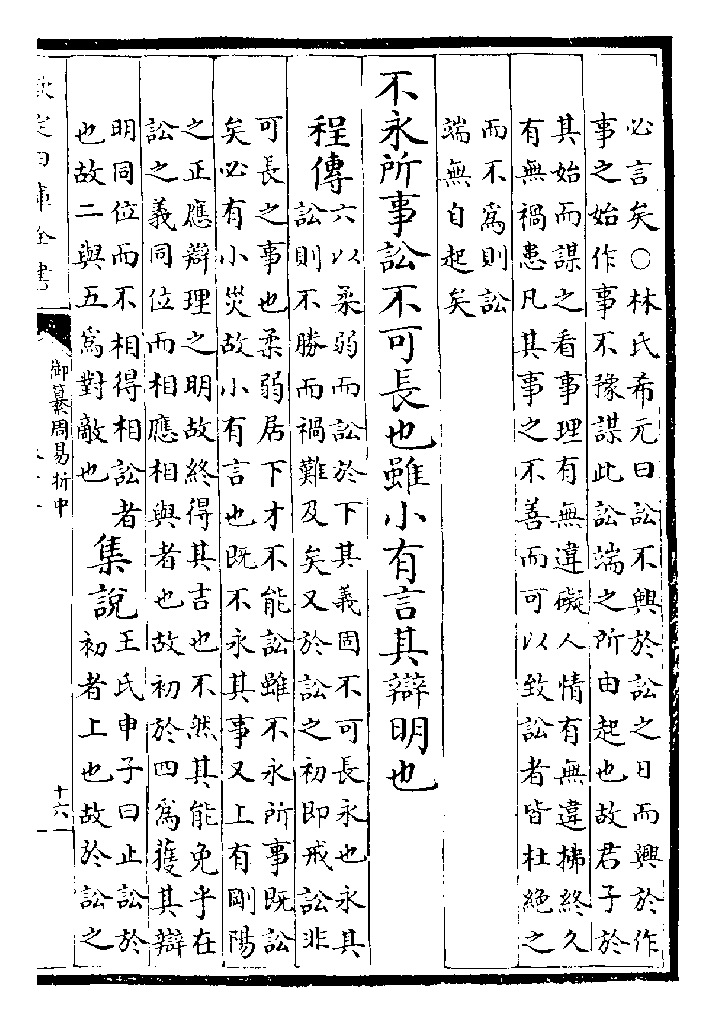 必言矣○林氏希元曰訟不興於訟之日而興於作
事之始作事不豫謀此訟端之所由起也故君子於
其始而謀之看事理有無違礙人情有無違拂終久
有無禍患凡其事之不善而可以致訟者皆杜絶之
而不爲則訟
端無自起矣
不永所事訟不可長也雖小有言其辯明也
程傳
六以柔弱而訟於下其義固不可長永也永其
訟則不勝而禍難及矣又於訟之初即戒訟非
可長之事也柔弱居下才不能訟雖不永所事既訟
矣必有小災故小有言也既不永其事又上有剛陽
之正應辯理之明故終得其吉也不然其能免乎在
訟之義同位而相應相與者也故初於四爲獲其辯
明同位而不相得相訟者
也故二與五爲對敵也
集說
王氏申子曰止訟於
初者上也故於訟之
欽定四庫全書
御纂周易折中
十六